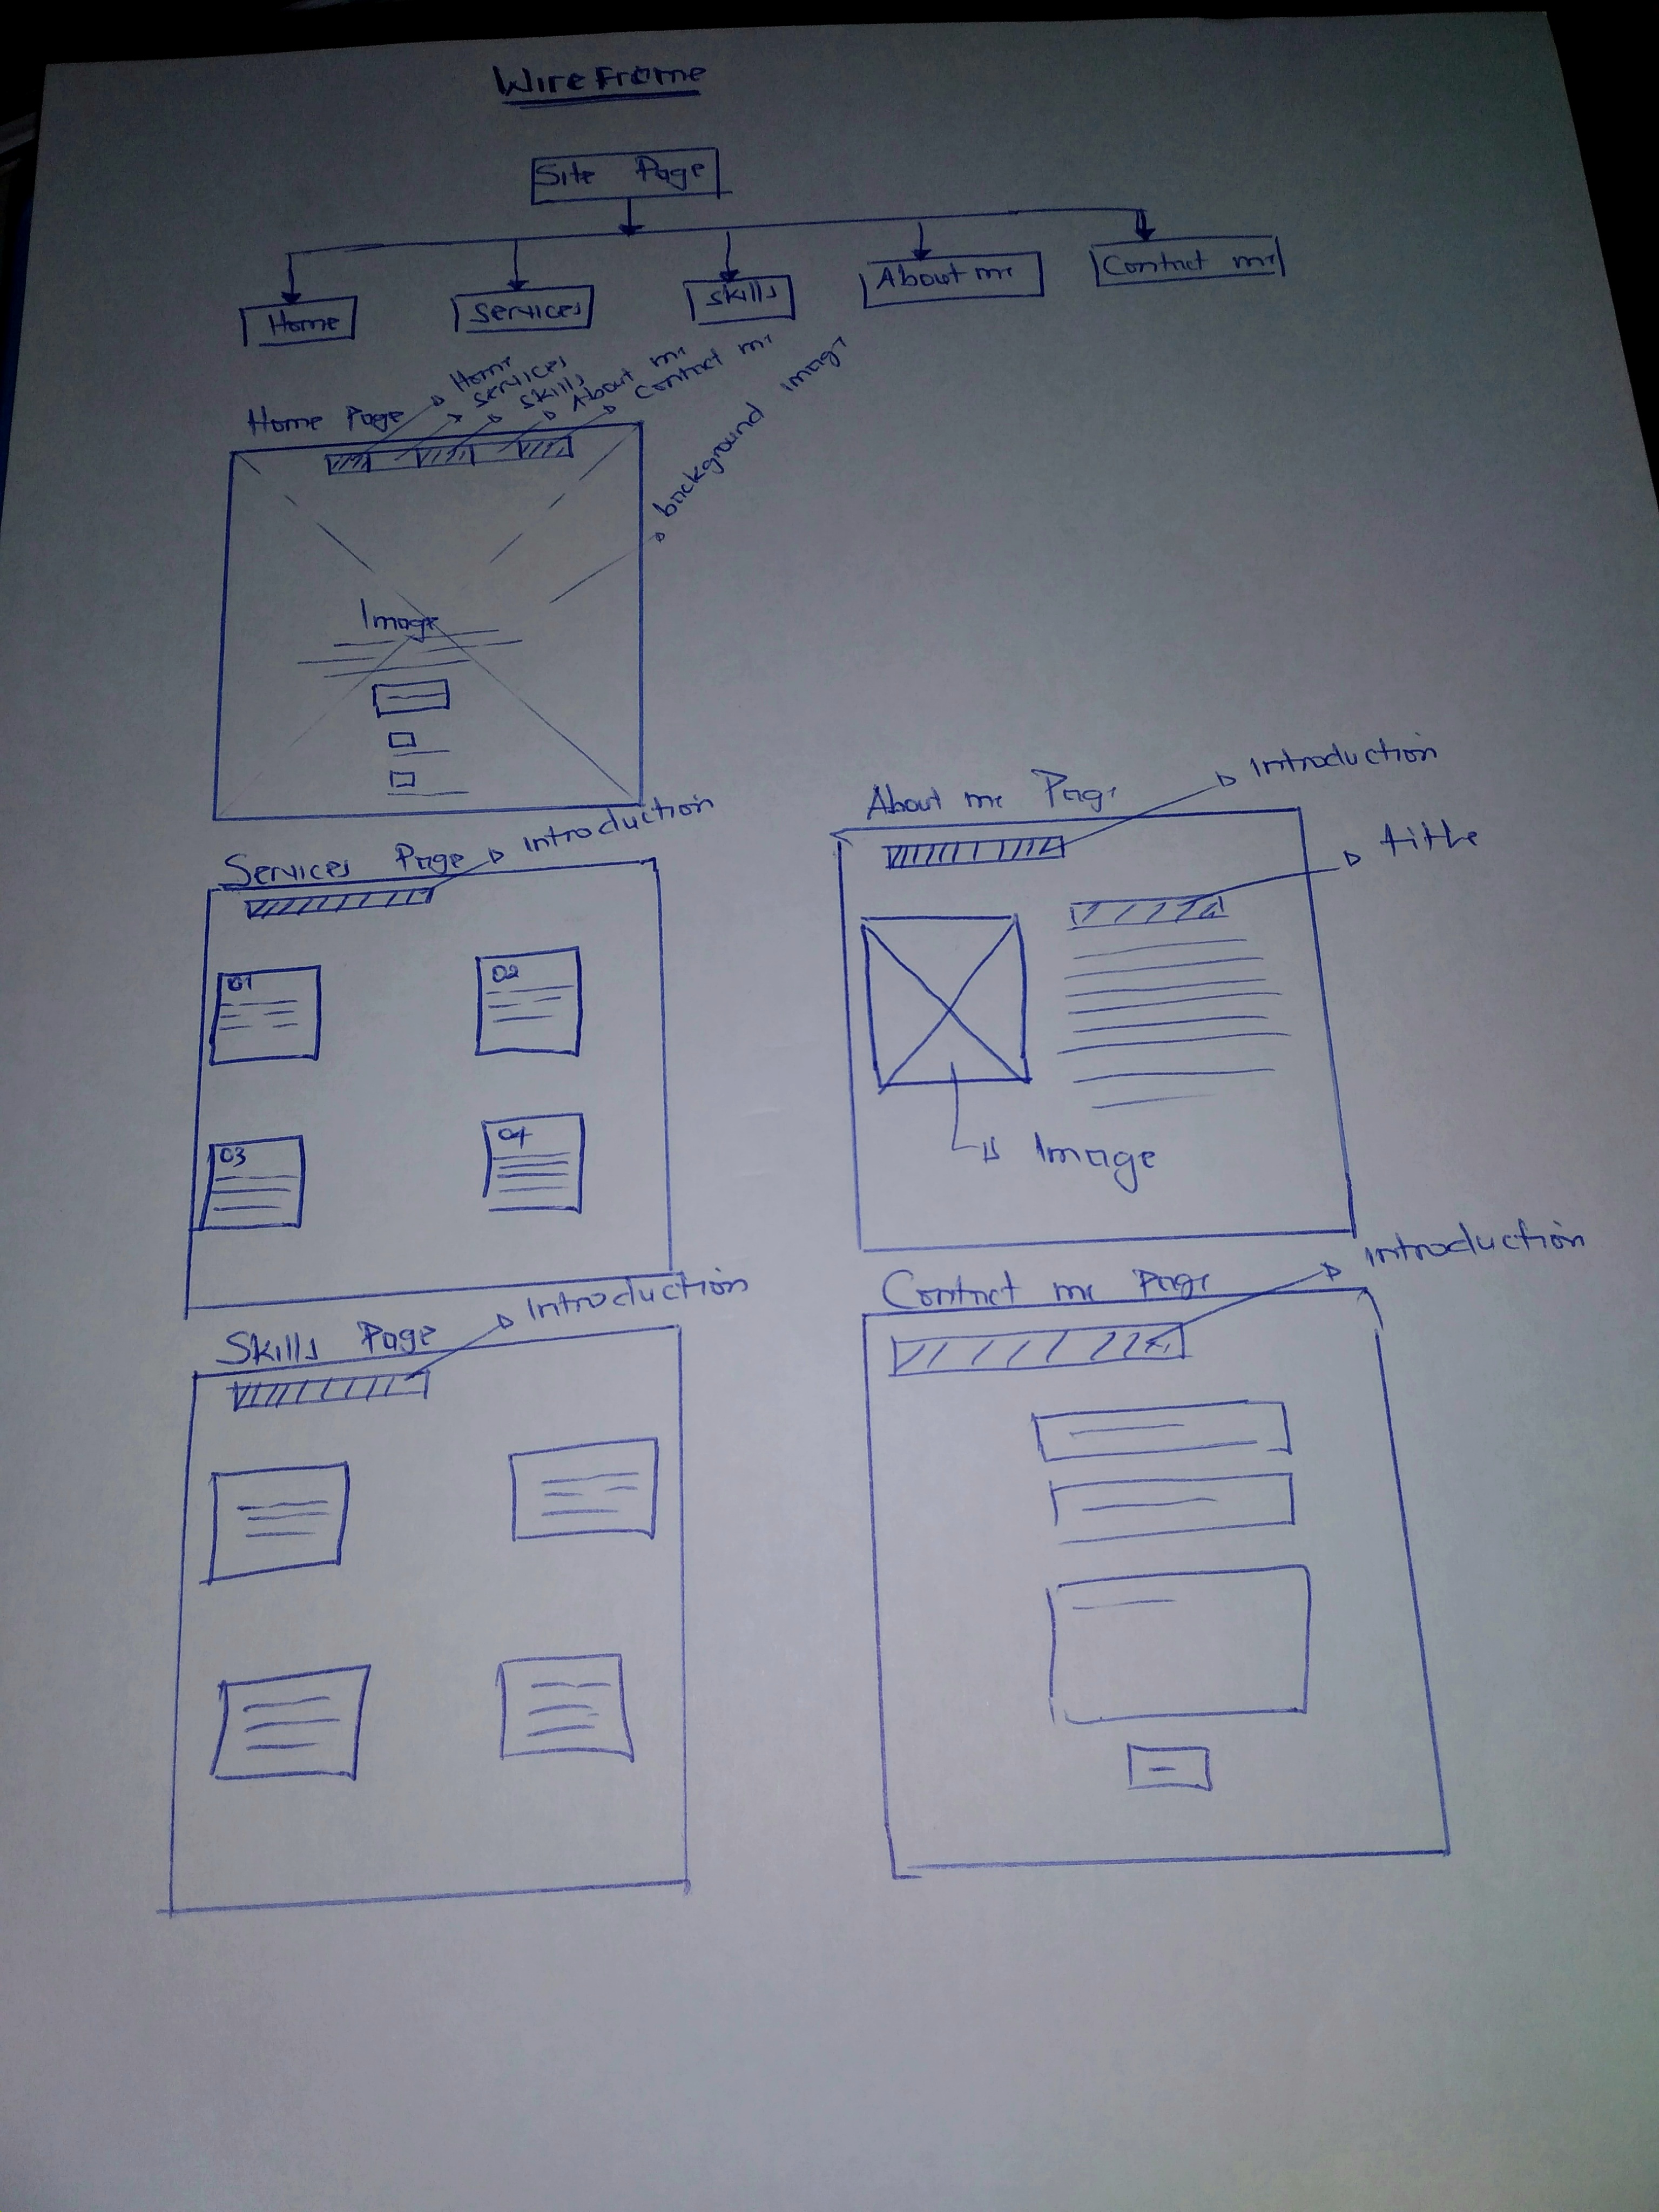 WireFrame
Site Page
Home
Services
Skills
About me
Contact me
Home Page
Home
Services
Skills
About me
Contact me
background image
Image
Services Page
Introduction
01
02
03
04
About me Page
Introduction
title
Image
Skills Page
Introduction
Contact me Page
Introduction